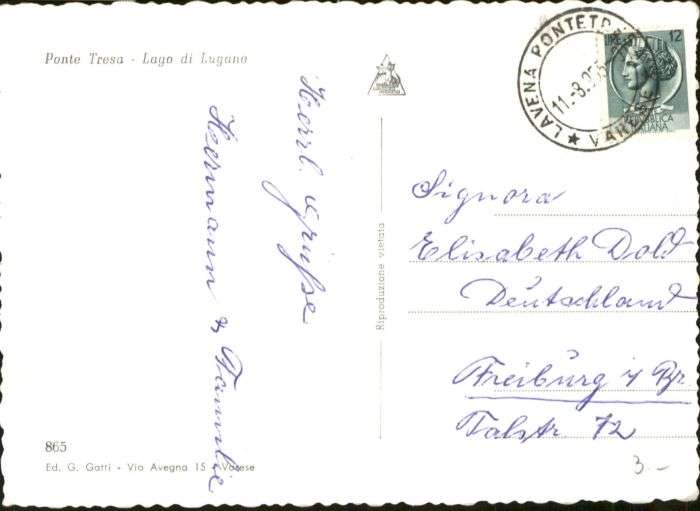 Ponte Tresa - Lago di Lugano
Herzl. Grüsse
Hermann & Familie
865
Ed. G. Gatti - Via Avegna 15 - Varese
Riproduzione vietata
LAVENA PONTETRESA
11.-8.955
★ VARESE
LIRE 12
REPUBBLICA
ITALIANA
Signora
Elisabeth Dold
Deutschland
Freiburg i/ Br.
Talstr. 72
3.-